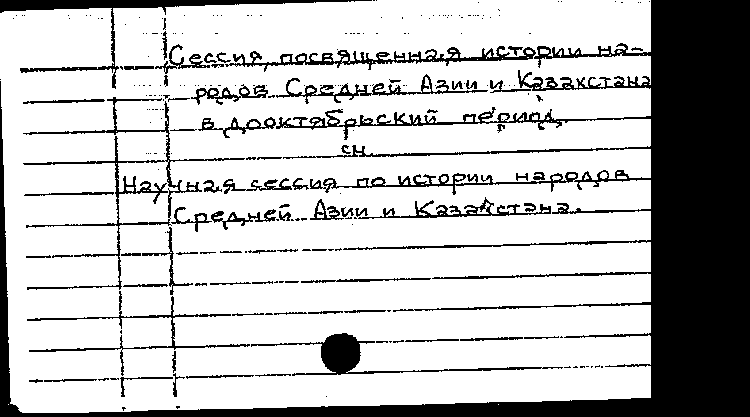 Сессия, посвященная истории на-
родов Средней Азии и Казахстана
в дооктябрьский период.
см.
Научная сессия по истории народов
Средней Азии и Казахстана.